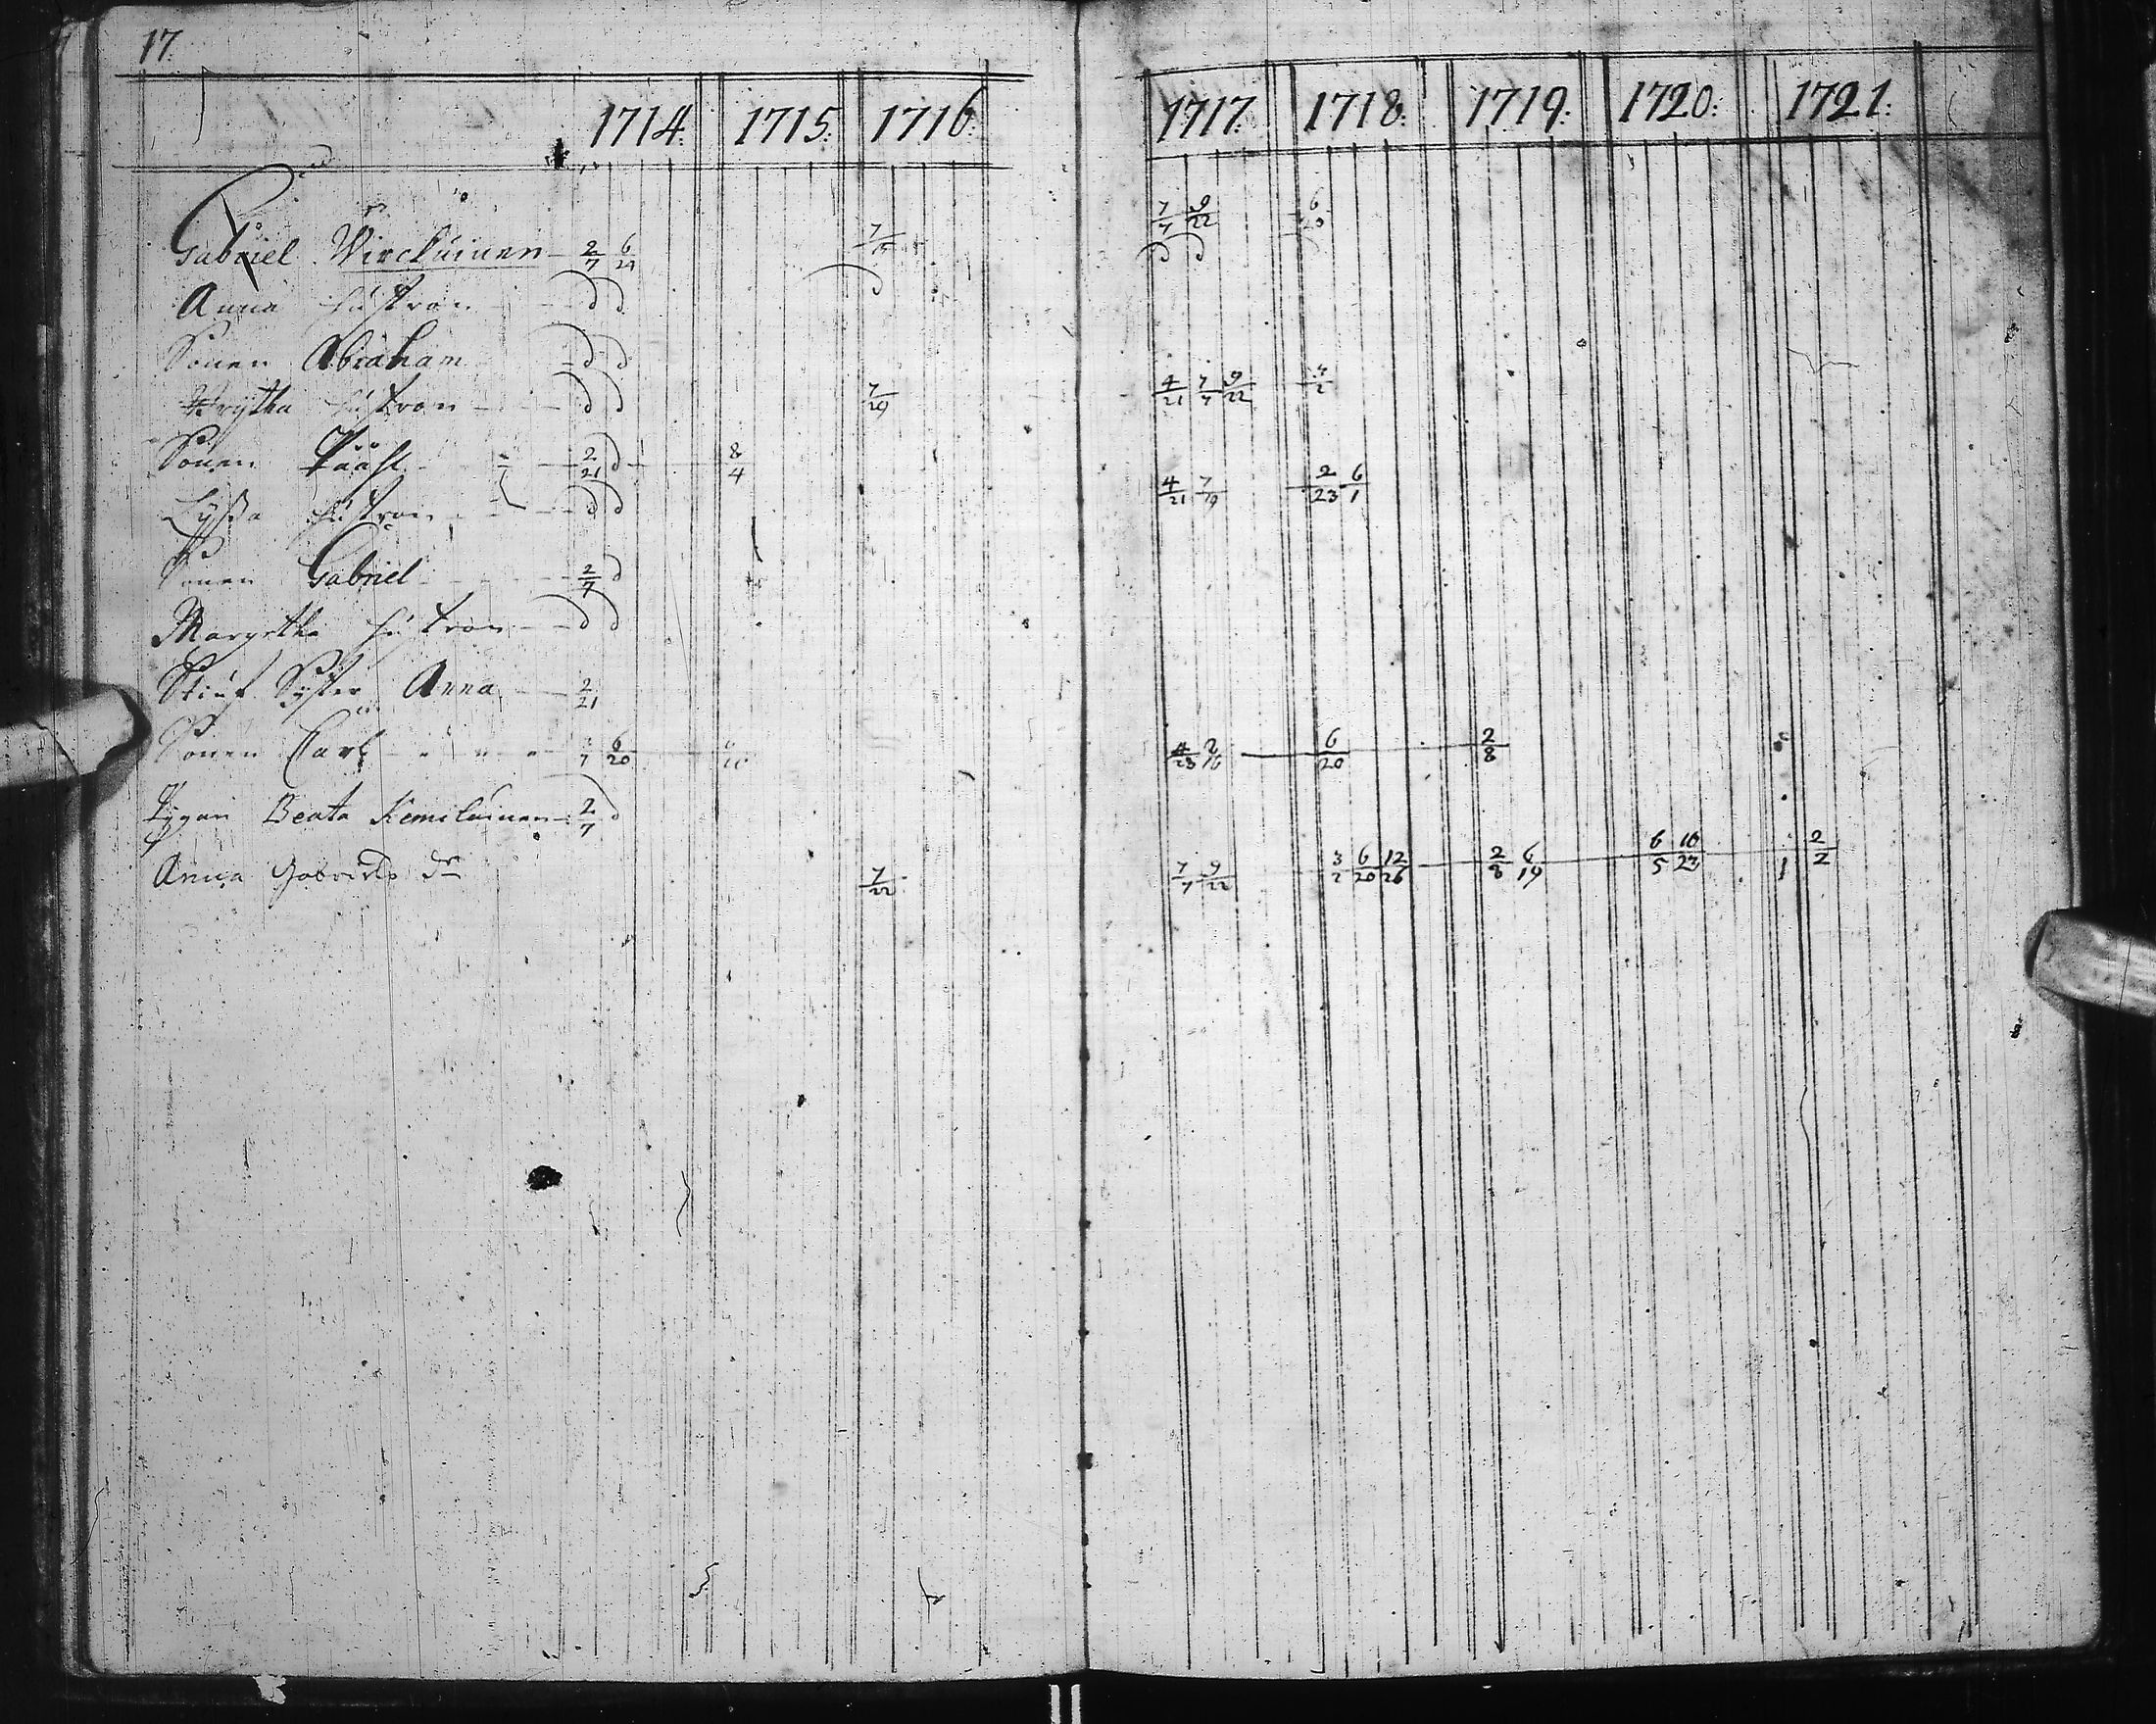 17.
1714. 1715. 1716. 1717. 1718. 1719. 1720. 1721.
Gabriel Wirckuinen 2/7 6/24 7/15 7/7 9/22 6/20
Anna hustron
Sonen Abraham
Brytha hustron 7/29 4/21 7/7 9/22
Sonen Pååhl 2/21 8/4 4/21 7/19 2/23 6/1
Lyssa hustron
Sonen Gabriel 2/7
Margetha hustron
Stiuf Syster Anna 2/21
Sonen Carl 6/20 6/20 2/8
Pigan Beata Kemiläinen 2/7
Anna Gabriels dr 7/22 7/7 9/22 3/2 6/20 12/26 2/8 6/19 6/5 10/23 2/2